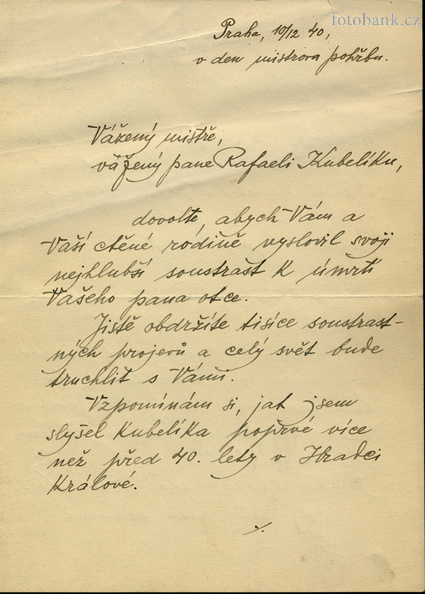 fotobank.cz
Praha, 10/12 40,
v den mistrova pohřbu.
Vážený mistře,
vážený pane Rafaeli Kubelíku,
dovolte, abych Vám a
Vaší ctěné rodině vyslovil svoji
nejhlubší soustrast k úmrtí
Vašeho pana otce.
Jistě obdržíte tisíce soustrast-
ných projevů a celý svět bude
truchlit s Vámi.
Vzpomínám si, jak jsem
slyšel Kubelíka poprvé více
než před 40. lety v Hradci
Králové.
./.